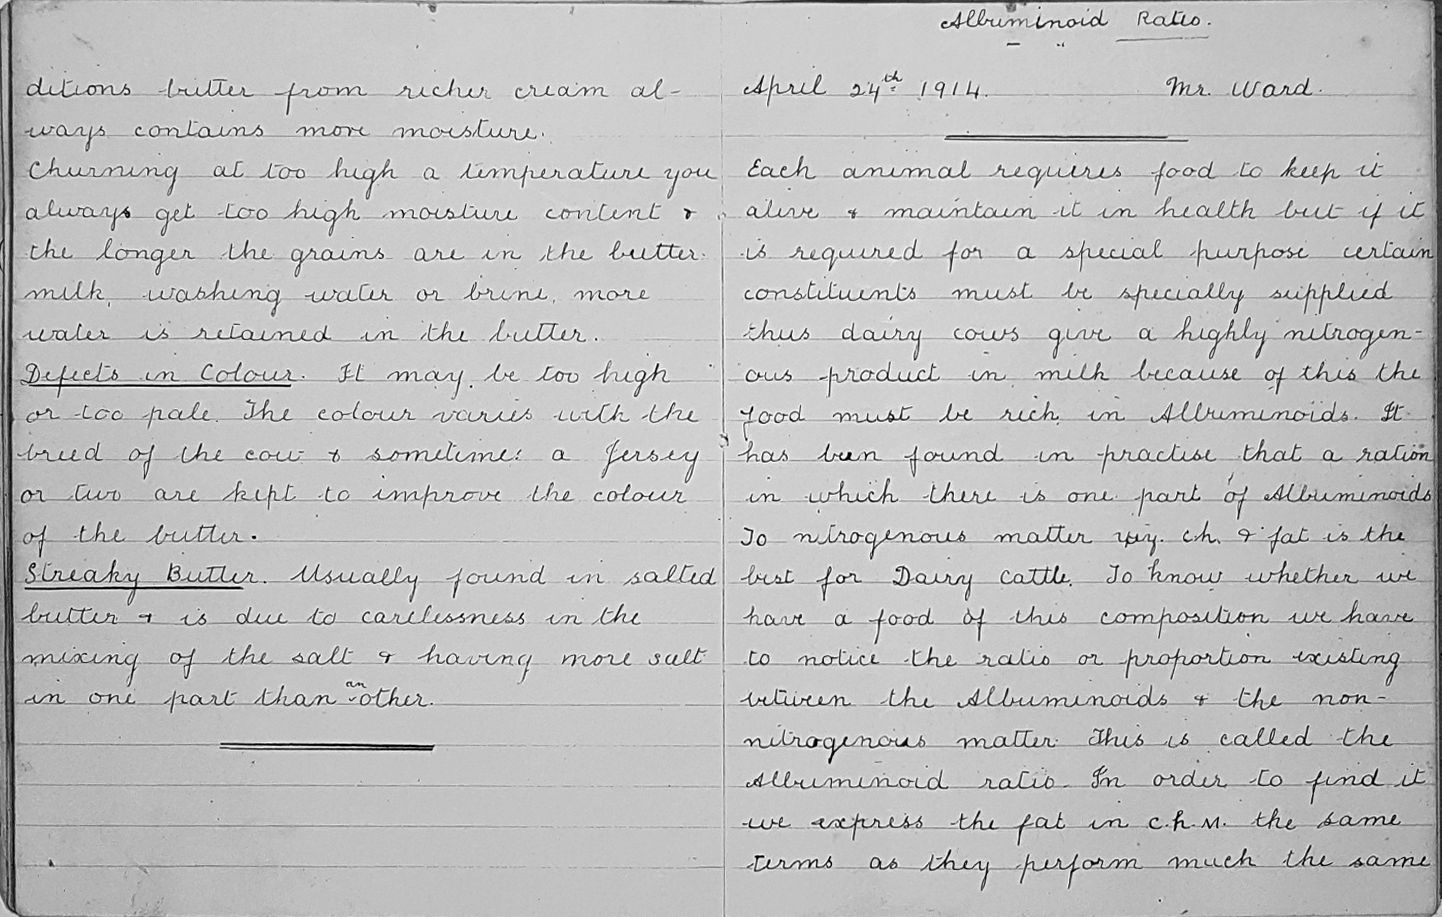 ditions butter from richer cream al-
ways contains more moisture.
Churning at too high a temperature you
always get too high moisture content &
the longer the grains are in the butter-
milk, washing water or brine, more
water is retained in the butter.
Defects in Colour. It may be too high
or too pale. The colour varies with the
breed of the cow & sometimes a Jersey
or two are kept to improve the colour
of the butter.
Streaky Butter. Usually found in salted
butter & is due to carelessness in the
mixing of the salt & having more salt
in one part than another.
Albuminoid Ratio.
April 24th 1914. Mr. Ward.
Each animal requires food to keep it
alive & maintain it in health but if it
is required for a special purpose certain
constituents must be specially supplied
thus dairy cows give a highly nitrogen-
ous product in milk because of this the
food must be rich in Albuminoids. It
has been found in practise that a ration
in which there is one part of Albuminoids
To nitrogenous matter c.h. & fat is the
best for Dairy Cattle. To know whether we
have a food of this composition we have
to notice the ratio or proportion existing
between the Albuminoids & the non-
nitrogenous matter. This is called the
Albuminoid ratio. In order to find it
we express the fat in c.h.M. the same
terms as they perform much the same